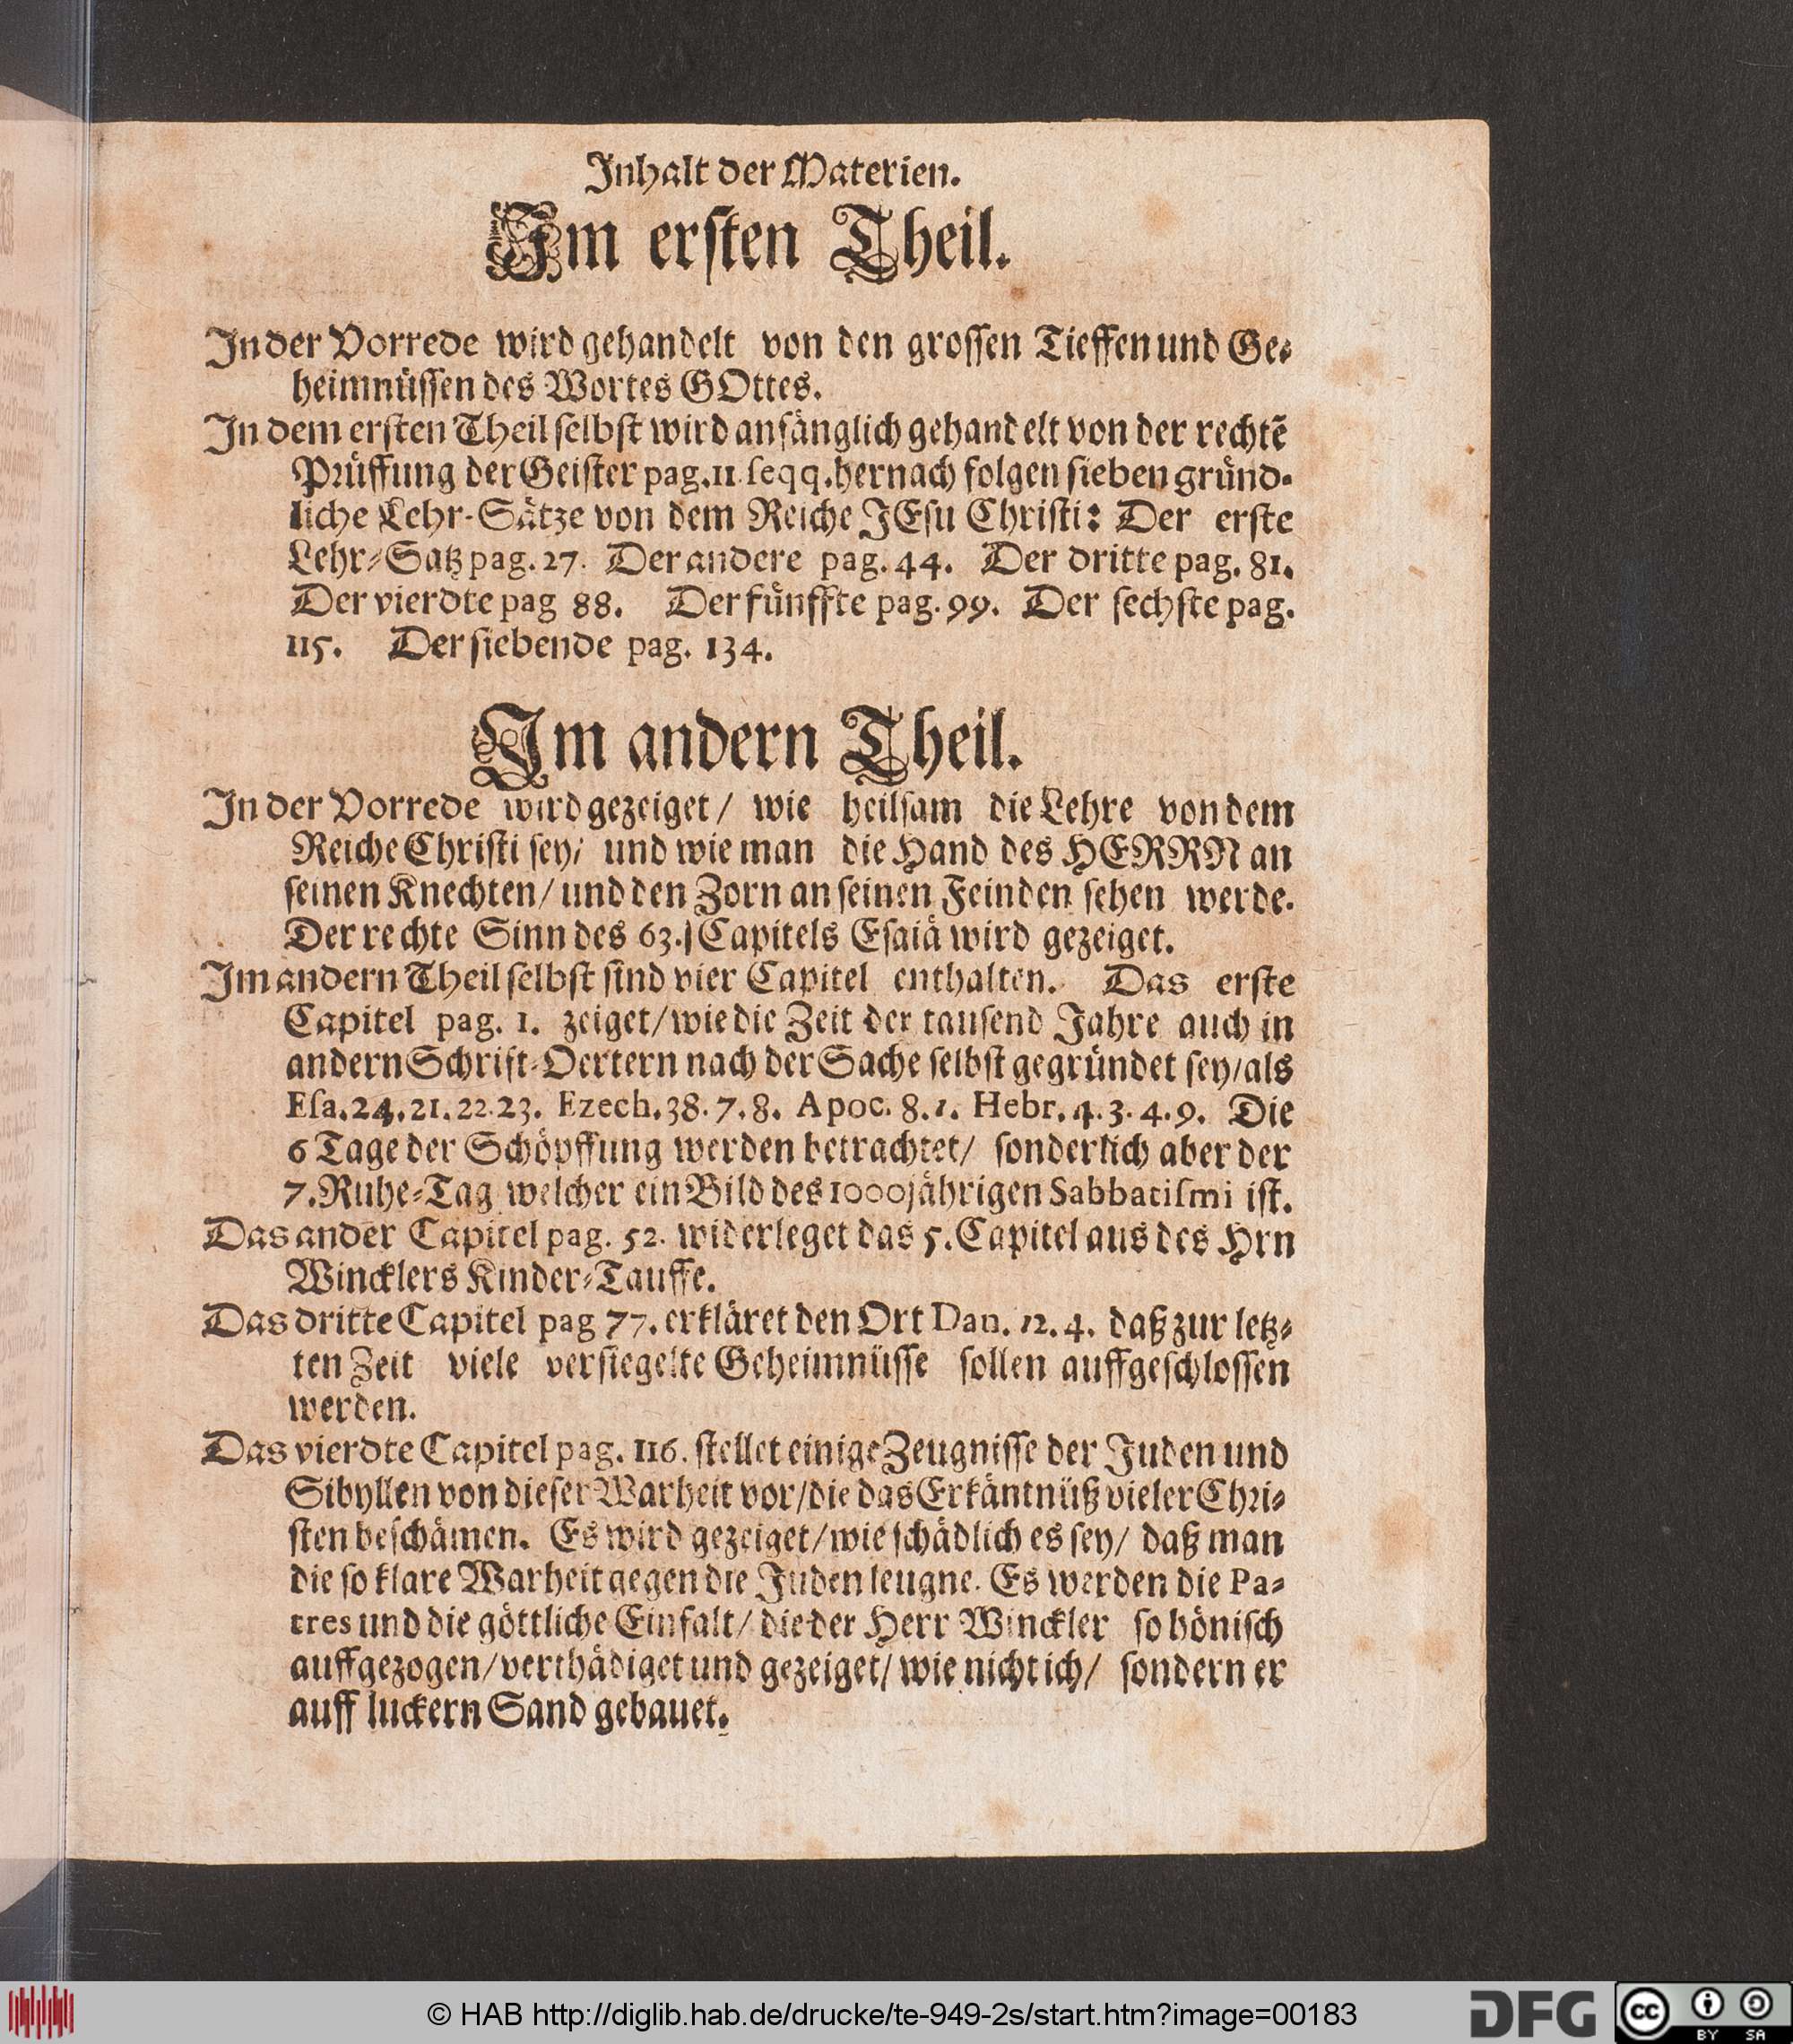 Inhalt der Materien.
Im ersten Theil.
In der Vorrede wird gehandelt von den grossen Tieffen und Ge-
heimnüssen des Wortes GOttes.
In dem ersten Theil selbst wird anfänglich gehandelt von der rechtẽ
Prüffung der Geister pag. 11. seqq. hernach folgen sieben gründ-
liche Lehr-Sätze von dem Reiche JEsu Christi: Der erste
Lehr-Satz pag. 27. Der andere pag. 44. Der dritte pag. 81.
Der vierdte pag 88. Der fünffte pag. 99. Der sechste pag.
115. Der siebende pag. 134.
Im andern Theil.
In der Vorrede wird gezeiget / wie heilsam die Lehre von dem
Reiche Christi sey / und wie man die Hand des HERRN an
seinen Knechten / und den Zorn an seinen Feinden sehen werde.
Der rechte Sinn des 63. Capitels Esaiä wird gezeiget.
Im andern Theil selbst sind vier Capitel enthalten. Das erste
Capitel pag. 1. zeiget / wie die Zeit der tausend Jahre auch in
andern Schrift-Oertern nach der Sache selbst gegründet sey / als
Esa. 24. 21. 22. 23. Ezech. 38. 7. 8. Apoc. 8. 1. Hebr. 4. 3. 4. 9. Die
6 Tage der Schöpffung werden betrachtet / sonderlich aber der
7. Ruhe-Tag welcher ein Bild des 1000jährigen Sabbatismi ist.
Das ander Capitel pag. 52. widerleget das 5. Capitel aus des Hrn
Wincklers Kinder-Tauffe.
Das dritte Capitel pag 77. erkläret den Ort Dan. 12. 4. daß zur letz-
ten Zeit viele versiegelte Geheimnüsse sollen auffgeschlossen
werden.
Das vierdte Capitel pag. 116. stellet einige Zeugnisse der Juden und
Sibyllen von dieser Warheit vor / die das Erkäntnüß vieler Chri-
sten beschämen. Es wird gezeiget / wie schädlich es sey / daß man
die so klare Warheit gegen die Juden leugne. Es werden die Pa-
tres und die göttliche Einfalt / die der Herr Winckler so hönisch
auffgezogen / verthädiget und gezeiget / wie nicht ich / sondern er
auff luckern Sand gebauet.
© HAB http://diglib.hab.de/drucke/te-949-2s/start.htm?image=00183
DFG
cc BY SA